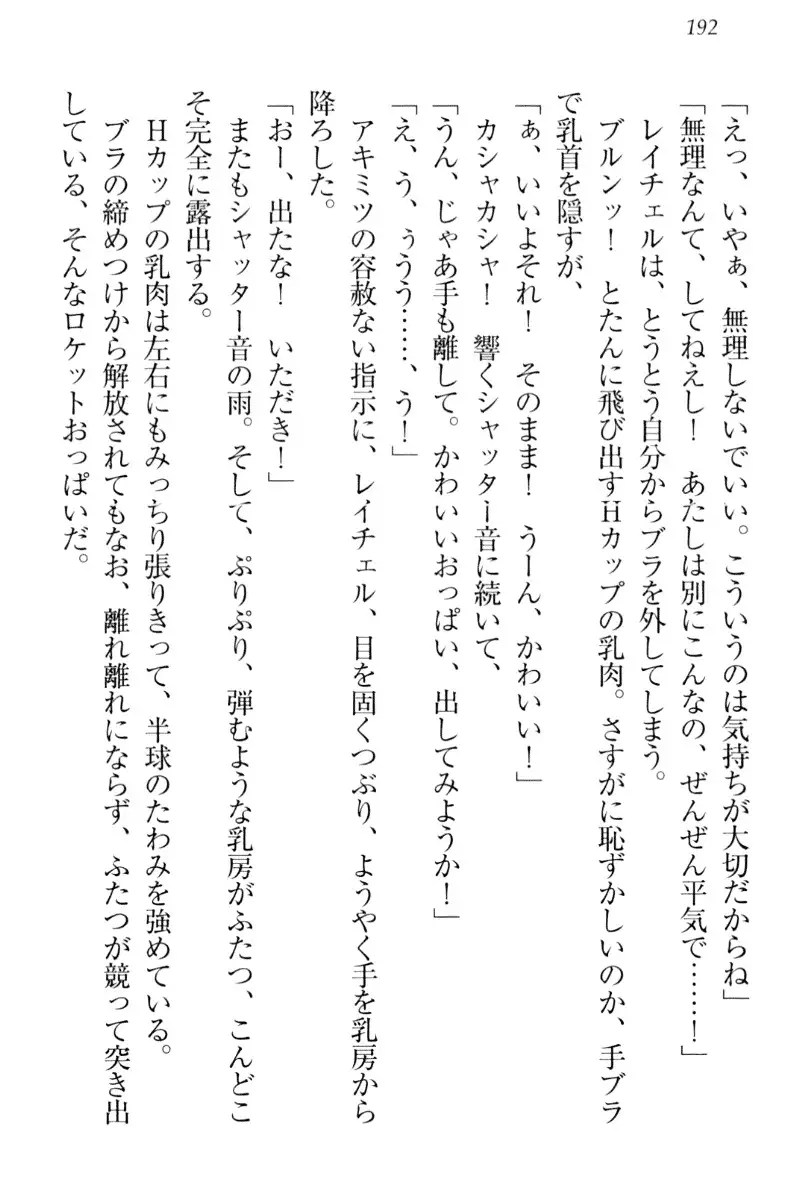 192
「えっ、いやぁ、無理しないでいい。こういうのは気持ちが大切だからね」
「無理なんて、してねえし！　あたしは別にこんなの、ぜんぜん平気で……！」
　レイチェルは、とうとう自分からブラを外してしまう。
　ブルンッ！　とたんに飛び出すHカップの乳肉。さすがに恥ずかしいのか、手ブラ
で乳首を隠すが、
「ぁ、いいよそれ！　そのまま！　うーん、かわいい！」
　カシャカシャ！　響くシャッター音に続いて、
「うん、じゃあ手も離して。かわいいおっぱい、出してみようか！」
「え、う、ぅうう……、う！」
　アキミツの容赦ない指示に、レイチェル、目を固くつぶり、ようやく手を乳房から
降ろした。
「おー、出たな！　いただき！」
　またもシャッター音の雨。そして、ぷりぷり、弾むような乳房がふたつ、こんどこ
そ完全に露出する。
　Hカップの乳肉は左右にもみっちり張りきって、半球のたわみを強めている。
　ブラの締めつけから解放されてもなお、離れ離れにならず、ふたつが競って突き出
している、そんなロケットおっぱいだ。